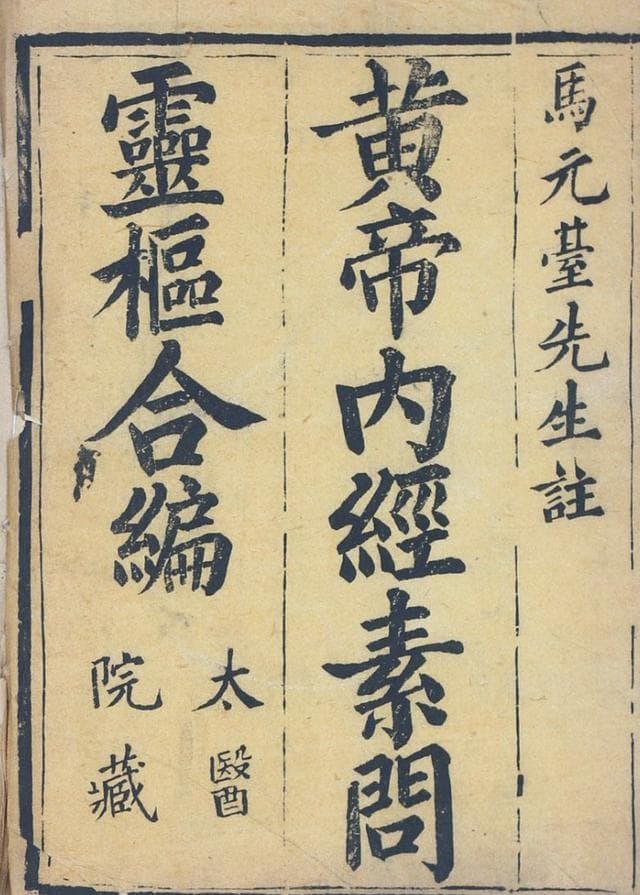 馬元臺先生註
黄帝内經素問
靈樞合編
太醫
院藏